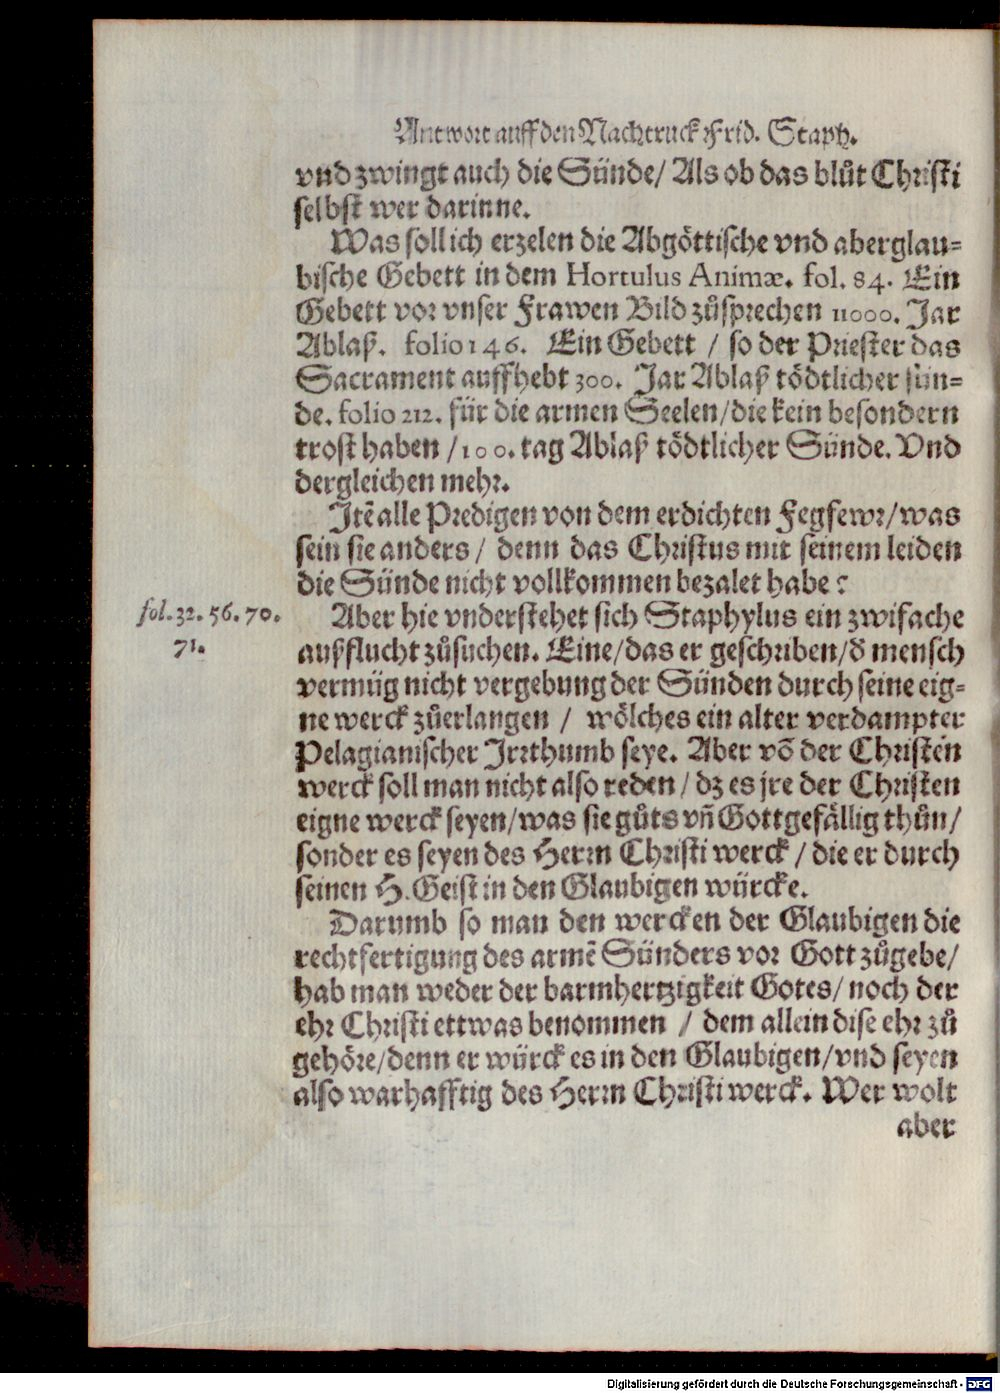 Antwort auff den Nachtruck Frid. Staph.
vnd zwingt auch die Sünde/ Als ob das blůt Christi
selbst wer darinne.
Was soll ich erzelen die Abgöttische vnd aberglau-
bische Gebett in dem Hortulus Animæ. fol. 84. Ein
Gebett vor vnser Frawen Bild zůsprechen 11000. Jar
Ablaß. folio 146. Ein Gebett / so der Priester das
Sacrament auffhebt 300. Jar Ablaß tödtlicher sün-
de. folio 212. für die armen Seelen/die kein besondern
trost haben /100. tag Ablaß tödtlicher Sünde. Vnd
dergleichen mehr.
Itē alle Predigen von dem erdichten Fegfewr/was
sein sie anders / denn das Christus mit seinem leiden
die Sünde nicht vollkommen bezalet habe?
fol. 32. 56. 70.
71.
Aber hie vnderstehet sich Staphylus ein zwifache
außflucht zůsuchen. Eine/das er geschriben/d̕ mensch
vermüg nicht vergebung der Sünden durch seine eig-
ne werck zůerlangen / wölches ein alter verdampter
Pelagianischer Irrthumb seye. Aber vō der Christen
werck soll man nicht also reden / dz es jre der Christen
eigne werck seyen/was sie gůts vñ Gottgefällig thůn/
sonder es seyen des Herrn Christi werck / die er durch
seinen H. Geist in den Glaubigen würcke.
Darumb so man den wercken der Glaubigen die
rechtfertigung des armē Sünders vor Gott zůgebe/
hab man weder der barmhertzigkeit Gotes/ noch der
ehr Christi ettwas benommen / dem allein dise ehr zů
gehöre/denn er würck es in den Glaubigen/vnd seyen
also warhafftig des Herrn Christi werck. Wer wolt
aber
Digitalisierung gefördert durch die Deutsche Forschungsgemeinschaft - DFG